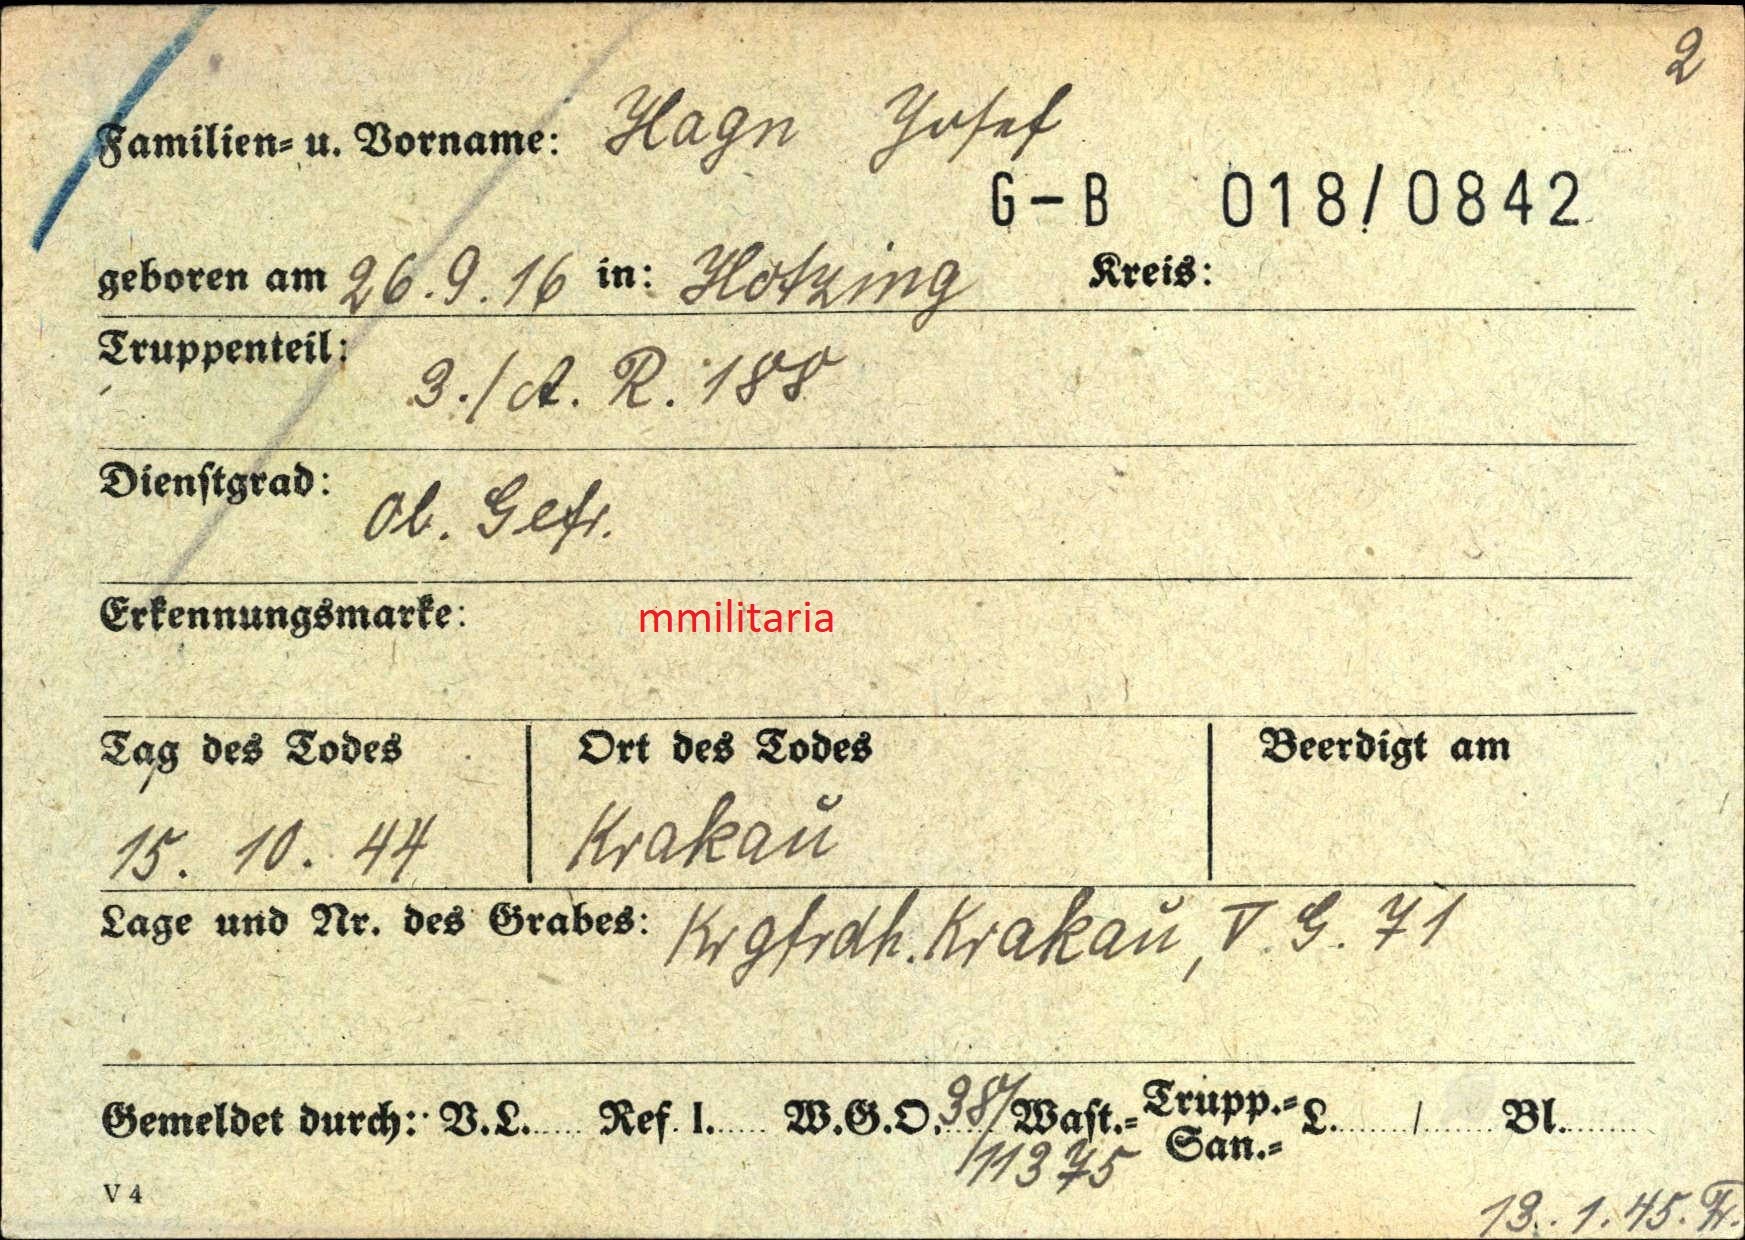 2
Familien- u. Vorname: Hagn Josef
G-B 018/0842
geboren am 26.9.16 in: Hötzing Kreis:
Truppenteil: 3./A.R. 188
Dienstgrad: Ob. Gefr.
Erkennungsmarke:
mmilitaria
Tag des Todes Ort des Todes Beerdigt am
15. 10. 44 Krakau
Lage und Nr. des Grabes: Krgfrdh. Krakau, V. G. 71
Gemeldet durch: V.L..... Ref. I..... W.G.O. 38/ Wast.- Trupp.- San.- L......./....... Bl........
/11375
V 4
13.1.45. Fr.